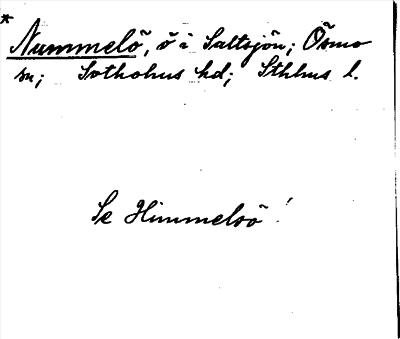 * Nummelö, ö i Saltsjön; Ösmo
sn; Sotholms hd; Sthlms l.
Se Himmelsö!